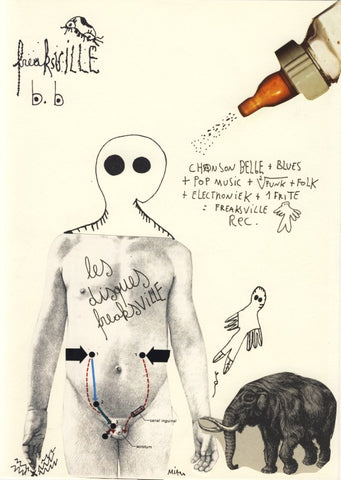 freaksville
b.b
CHANSON BELLE + BLUES
+ POP MUSIC + FUNK + FOLK
+ ELECTRONIEK + 1 FRITE
= FREAKSVILLE
Rec.
les
disques
freaksville
canal inguinal
scrotum